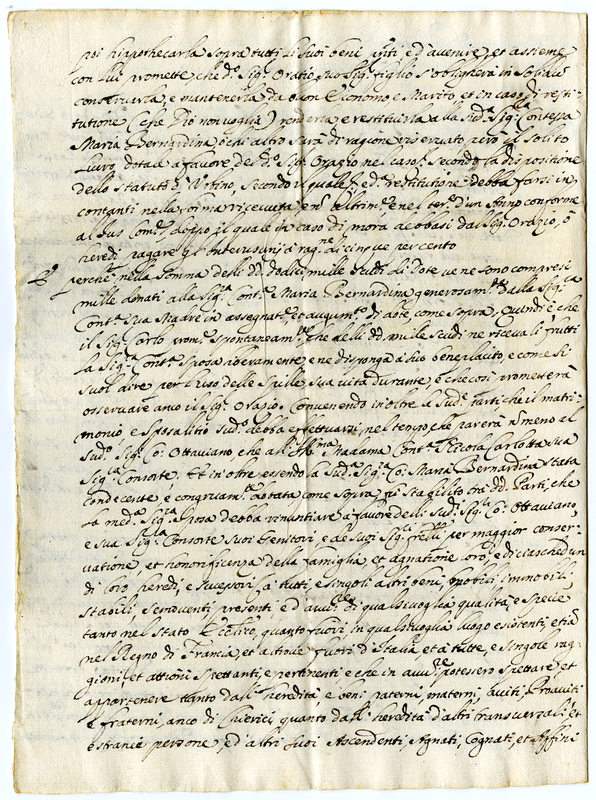 poi hippothecarla sopra tutti li suoi beni pñti ed avenire, et assieme
con lui promette che d.º Sig.r Oratio suo Sig.r figlio s'obligherà in solidū
conservarla, e mantenerla da buon Economo e Marito, et in caso di resti-
tutione (che Dio non voglia) renderla e restituirla alla sud.a Sig.ra Contessa
Maria Bernardina, ò chi altro sarà di ragione riservato però il solito
lucro dotale a favore del d.º Sig.r Orazio nel caso, e secondo la dispositione
dello statuto d'Urbino, secondo il quale ed.a restitutione debba farsi in
contanti nella
al Jus Com.e, doppo il quale in caso di mora debbasi dal Sig.r Orazio, ò
heredi pagare gl'interusurij a rag.ne di cinque per cento
E perche nella somma delli dd. dodici mille scudi di dote ve ne sono compresi
mille donati alla Sig.ra Cont.a Maria Bernardina generosam.te dalla Sig.ra
Cont.a sua Madre in assegnat.e et augum.to di dote come sopra, quindi è che
il Sig.r Carlo prom.e spontaneam.te che delli dd. mille scudi ne riceva li frutti
la Sig.ra Cont.a sposa liberamente, e ne disponga a suo beneplacito, e come si
suol dire per l'uso delle spille sua vita durante, e che così prometterà
osservare anco il Sig.r Orazio. Convenendo in oltre le sud.e parti che il matri-
monio, e sposalitio sud.º debba effettuarsi nel tempo che parerà nō meno al
sud.º Sig.r Co: Ottaviano che all' Ill.ma Madama Cont.a Niccola Carlotta sua
Sig.ra Consorte. Et in oltre essendo la sud.a Sig.ra Co: Maria Bernardina stata
condecente, e congruam.e dotata come sopra, fu stabilito frà dd. Parti, che
la med.a Sig.ra sposa debba renuntiare a favore delli sud.i Sig.ri Co: Ottaviano,
e sua Sig.ra Consorte suoi Genitori, e de suoi Sig.ri frēlli, per maggior conser-
vatione, et honorificenza della famiglia, et agnatione loro, e di ciasched'un
di loro heredi, e successori a tutti, e singoli altri beni, mobili, immobili,
stabili, semoventi, presenti, e d'avv.re di qualsivoglia qualità, e specie
tanto nel stato Ecc.lico, quanto fuori, in qualsivoglia luogo esistenti, etiā
nel Regno di Francia, et altrove fuori d'Italia, et à tutte, e singole rag-
gioni, et attioni spettanti, e pertinenti e che in avv.re potessero spettare, et
appartenere tanto dall'heredità e beni paterni, materni, aviti, Proaviti
e fraterni, anco di Chierici, quanto dall'heredità d'altri transversali, et
estranee persone, ed altri suoi Ascendenti, Agnati, Cognati, et Affini